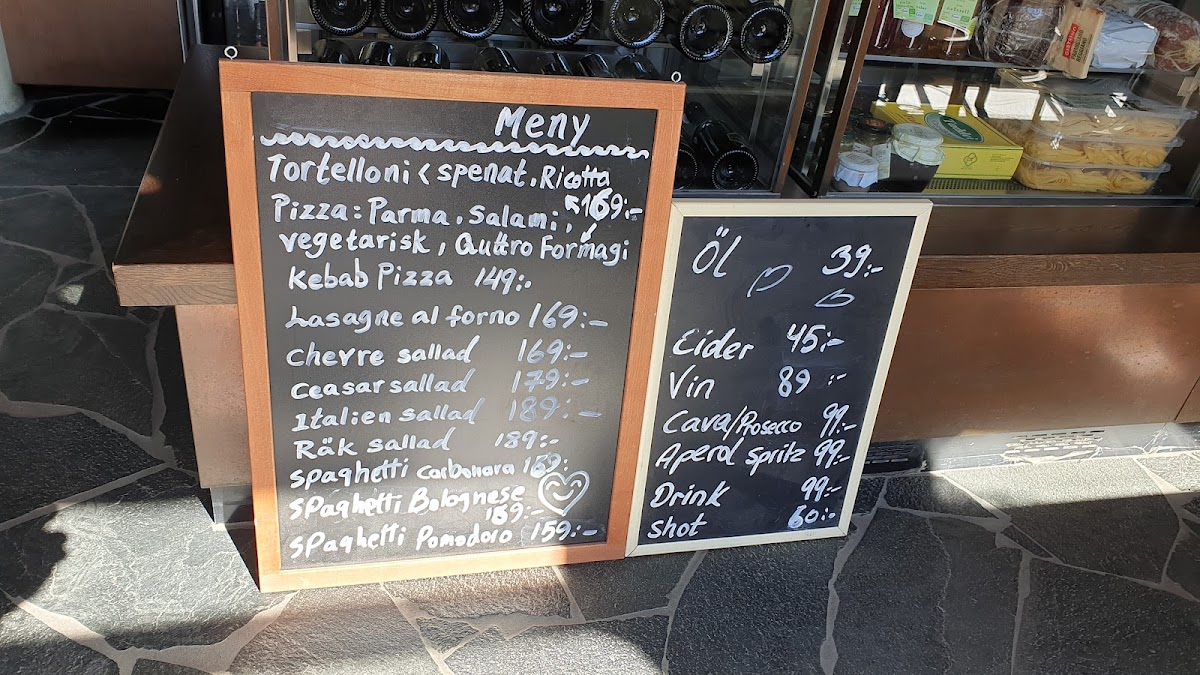 Meny
Tortelloni < spenat, Ricotta
Pizza: Parma, Salami, 169:-
vegetarisk, Quttro Formagi
Kebab Pizza 149:-
Lasagne al forno 169:-
Chevre sallad 169:-
Ceasar sallad 179:-
Italien sallad 189:-
Räk sallad 189:-
Spaghetti carbonara 169:-
Spaghetti Bolognese
169:-
Spaghetti Pomodoro 159:-
Öl 39:-
Cider 45:-
Vin 89:-
Cava/Prosecco 99:-
Aperol spritz 99:-
Drink 99:-
Shot 60:-